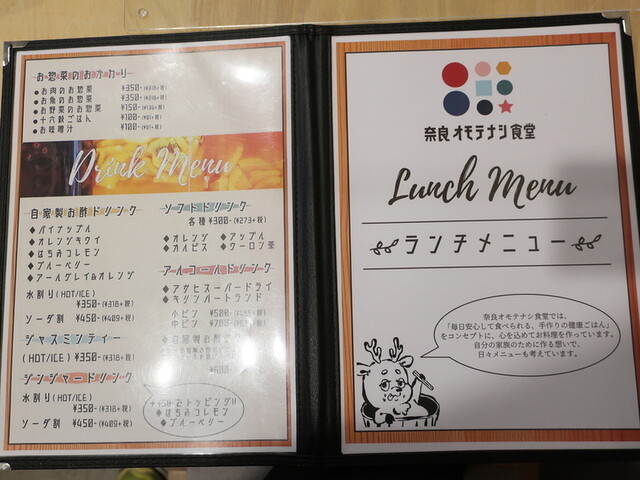 お惣菜のおかわり
●お肉のお惣菜 ¥350-(¥318+税)
●お魚のお惣菜 ¥350-(¥318+税)
●お野菜のお惣菜 ¥150-(¥136+税)
●十六穀ごはん ¥100-(¥91+税)
●お味噌汁 ¥100-(¥91+税)
Drink Menu
自家製お酢ドリンク
◆パイナップル
◆オレンジキウイ
◆はちみつレモン
◆ブルーベリー
◆アールグレイ&オレンジ
水割り(HOT/ICE)
¥350-(¥318+税)
ソーダ割 ¥450-(¥409+税)
ジャスミンティー
(HOT/ICE) ¥350-(¥318+税)
ジンジャードリンク
水割り(HOT/ICE)
¥350-(¥318+税)
ソーダ割 ¥450-(¥409+税)
ソフトドリンク
各種 ¥300-(¥273+税)
◆オレンジ ◆アップル
◆カルピス ◆ウーロン茶
アルコールドリンク
◆アサヒスーパードライ
◆キリンハートランド
小ビン ¥500-
中ビン ¥700-
◆自家製お酢
¥600-
+¥50-でトッピング!!
◆はちみつレモン
◆ブルーベリー
奈良オモテナシ食堂
Lunch Menu
ランチメニュー
奈良オモテナシ食堂では、
「毎日安心して食べられる、手作りの健康ごはん」
をコンセプトに、心を込めてお料理を作っています。
自分の家族のために作る想いで、
日々メニューも考えています。